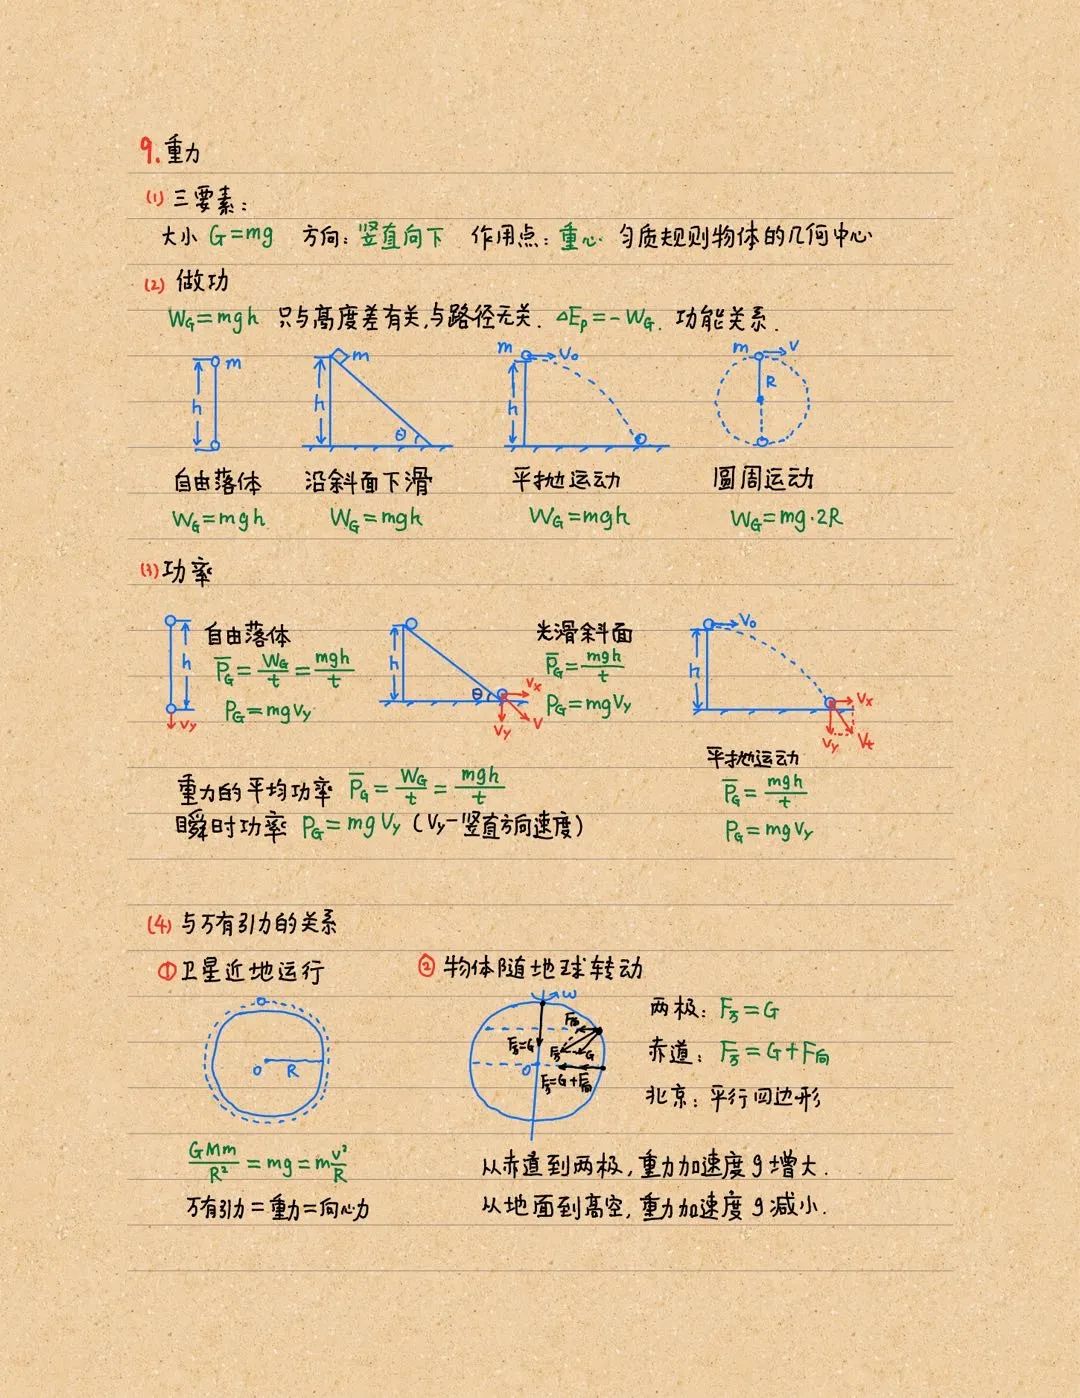 9.重力
(1) 三要素：
大小 G=mg 方向：竖直向下 作用点：重心 匀质规则物体的几何中心
(2) 做功
W_G=mgh 只与高度差有关，与路径无关. ΔE_p=-W_G. 功能关系.
m h
m h θ
m V₀ h
m V R
自由落体 沿斜面下滑 平抛运动 圆周运动
W_G=mgh W_G=mgh W_G=mgh W_G=mg·2R
(3)功率
h V_y 自由落体
P̄_G=W_G/t=mgh/t
P_G=mgV_y
h θ V_x V_y V 光滑斜面
P̄_G=mgh/t
P_G=mgV_y
V₀ h V_x V_y V_t
平抛运动
P̄_G=mgh/t
P_G=mgV_y
重力的平均功率 P̄_G=W_G/t=mgh/t
瞬时功率 P_G=mgV_y (V_y-竖直方向速度)
(4) 与万有引力的关系
①卫星近地运行 ② 物体随地球转动
O R
ω
F向
F万=G F万 G
O F万=G+F向
两极：F万=G
赤道：F万=G+F向
北京：平行四边形
GMm/R²=mg=mv²/R
万有引力=重力=向心力
从赤道到两极，重力加速度g增大.
从地面到高空，重力加速度g减小.